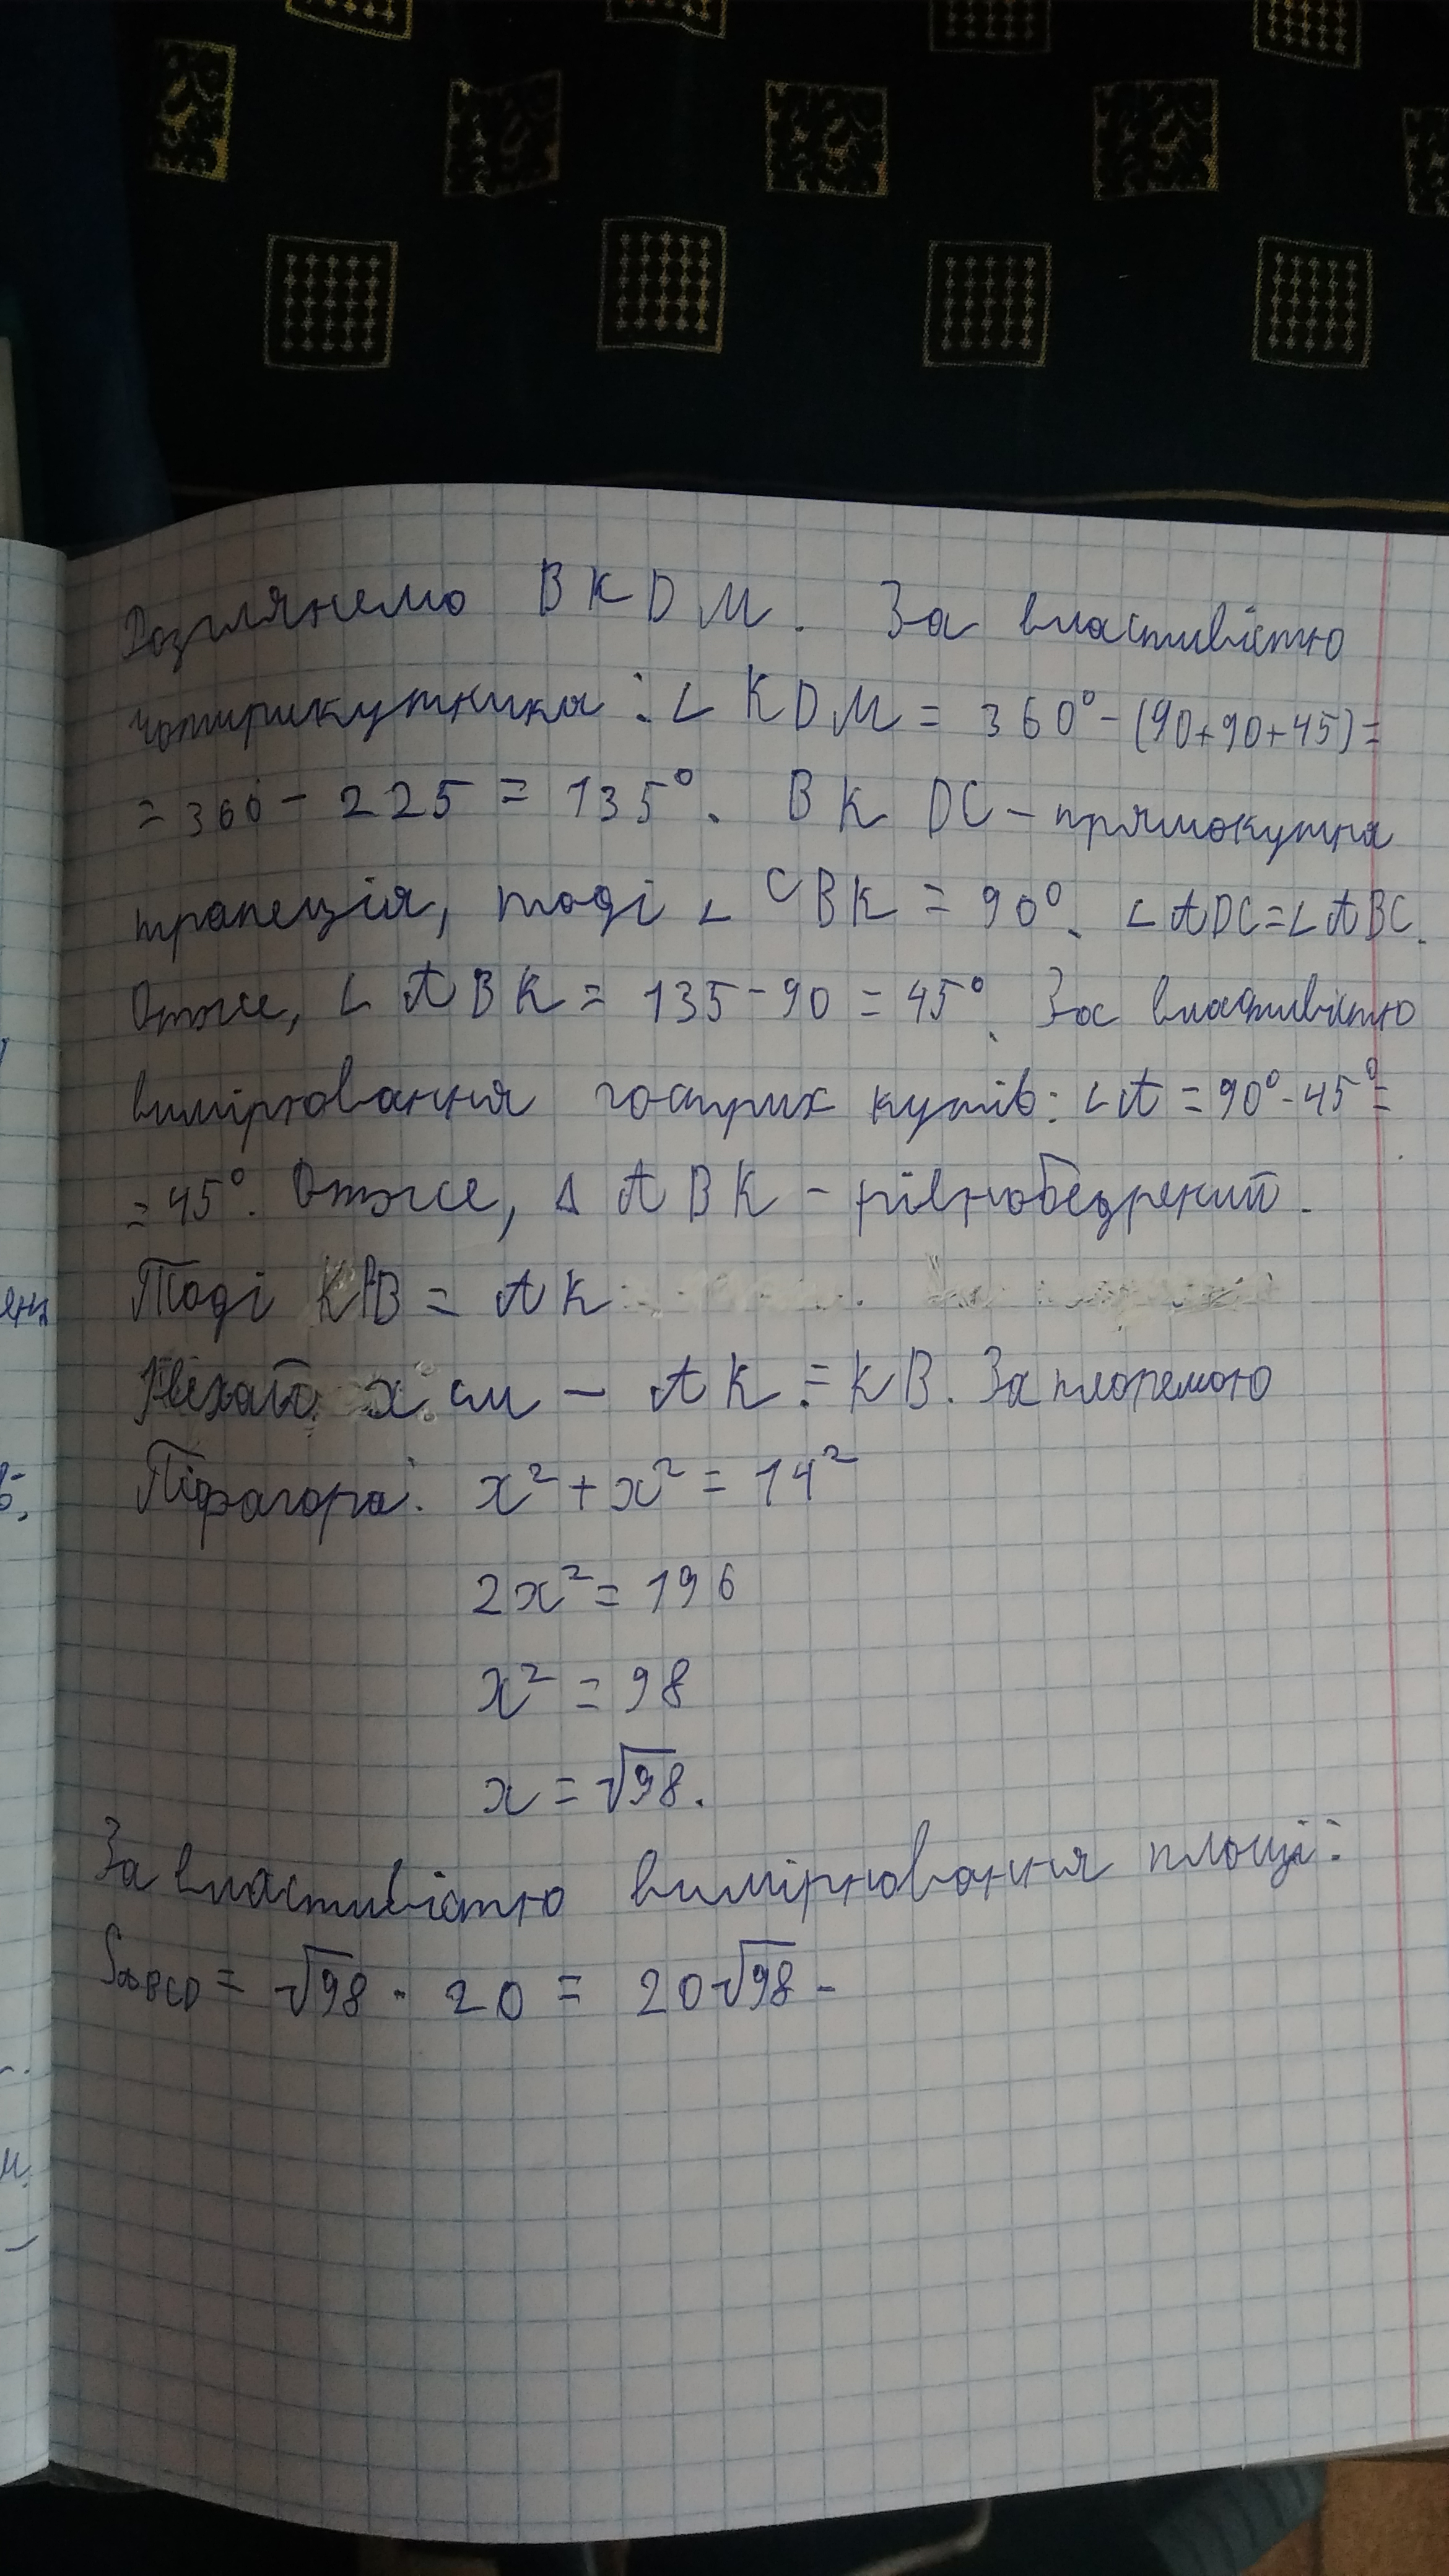 Розглянемо BKDM. За властивістю
чотирикутника: ∠KDM = 360° - (90+90+45) =
= 360 - 225 = 135°. BKDC - прямокутна
трапеція, тоді ∠CBK = 90°. ∠ADC = ∠ABC.
Отже, ∠ABK = 135 - 90 = 45°. За властивістю
вимірювання гострих кутів: ∠A = 90° - 45° =
= 45°. Отже, Δ ABK - рівнобедрений.
Тоді KB = AK
Нехай x см - AK = KB. За теоремою
Піфагора: x² + x² = 14²
2x² = 196
x² = 98
x = √98.
За властивістю вимірювання площі:
S ABCD = √98 · 20 = 20√98 -